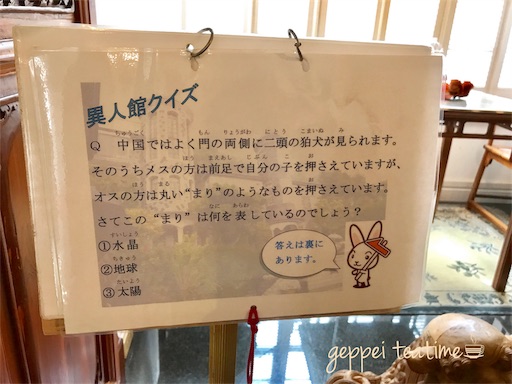 異人館クイズ
Q 中国ではよく門の両側に二頭の狛犬が見られます。
そのうちメスの方は前足で自分の子を押さえていますが、
オスの方は丸い“まり”のようなものを押さえています。
さてこの“まり”は何を表しているのでしょう?
①水晶
②地球
③太陽
答えは裏に
あります。
geppei teatime